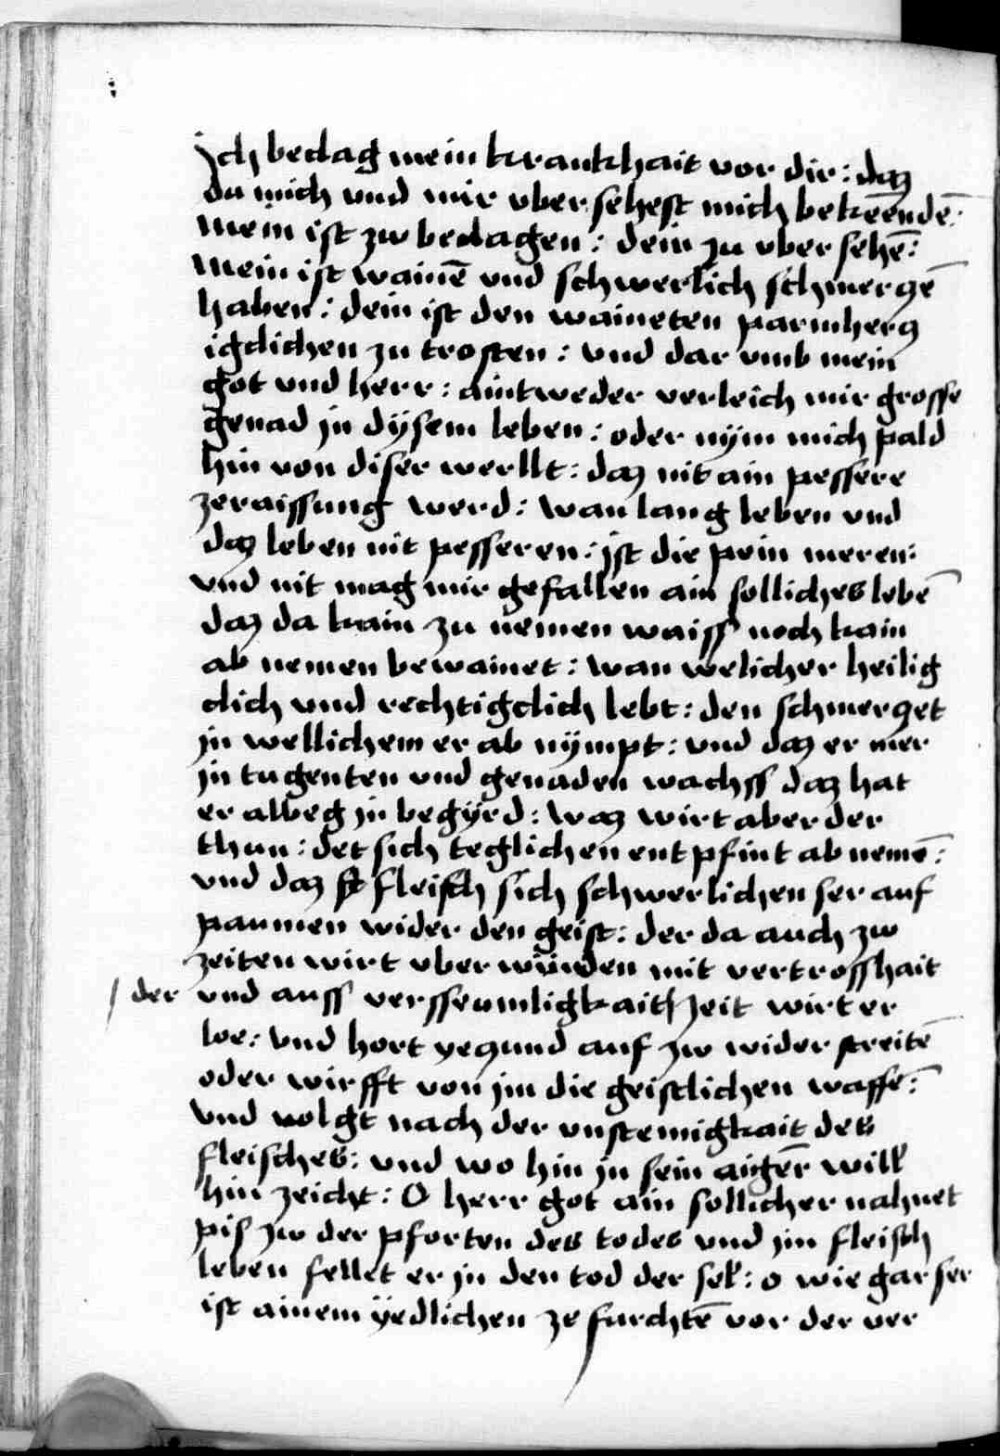 Ich beclag mein krankhait vor dir: daz
du mich vnd mir vber sehest mich bekeñnde:
Mein ist zw beclagen: dein zu vber sehē:
Mein ist wainē vnd schwerlich schmerczē
haben: dein ist den waineten parmhercz
igclichen zu trosten: vnd dar vmb mein
got vnd herr: aintweder verleich mir grosse
genad jn dysem leben: oder nÿm mich pald
hin von diser werllt: daz nit ain pessere
zeraissung werd: Wan lang leben vnd
daz leben nit pesseren: jst die pein meren:
vnd nit mag mir gefallen ain solliches lebē
daz da kain zu nemen waiss noch kain
ab nemen bewainet: wan welicher heilig
clich vnd rechtigclich lebt: den schmerczet
jn wellichem er ab nÿmpt: vnd daz er mer
jn tugenten vnd genaden wachss daz hat
er albeg jn begÿrd: Waz wirt aber der
thun: der sich teglichen ent pfint ab nemē:
vnd daz fleisch sich schwerlichen ser auf
paumen wider den geist: der da auch zw
zeiten wirt vber wunden mit vertrosshait
/ der vnd auss verssewmligkait zeit wirt er
loe: vnd hort yeczund auf zw wider streitē
oder wirfft von jm die geistlichen waffē:
Vnd volgt nach der vnstemigkait des
fleisches: vnd wo hin jn sein aigner will
hin zeicht: O herr got ain sollicher nahnet
pis zw der pforten des todes vnd jm fleisch
leben fellet er jn den tod der sel: o wie gar ser
ist ainem ÿedlichen ze furchtē vor der ver